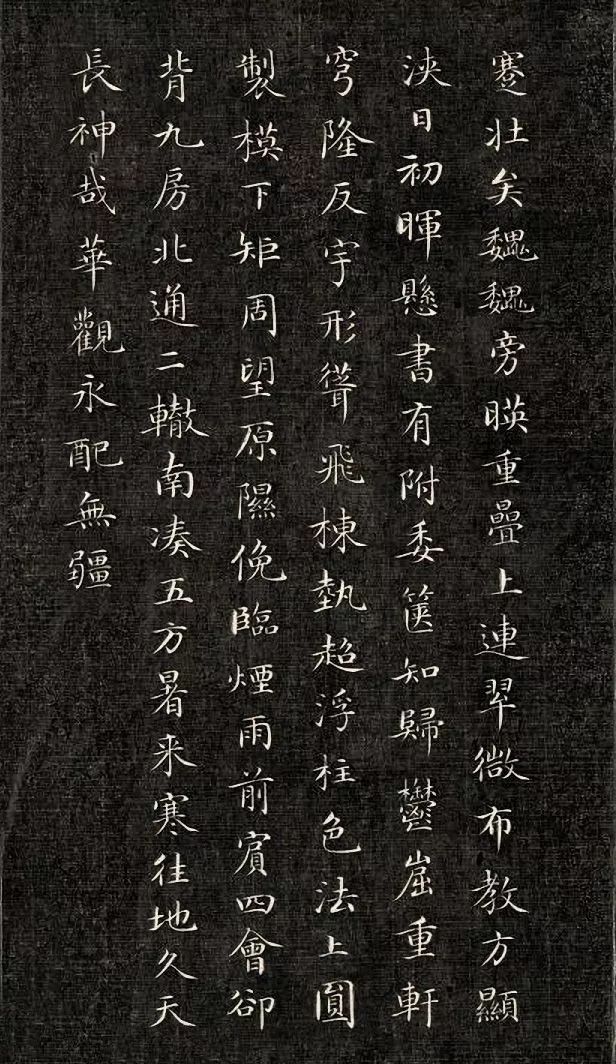 蹇壯矣魏魏旁暎重疊上連翆微布教方顯
浹日初暉懸書有附委篋知歸鬱崫重軒
穹隆反宇形聳飛棟埶超浮柱色法上圓
製模下矩周望原隰俛臨煙雨前賓四會卻
背九房北通二轍南凑五方暑来寒往地久天
長神哉華觀永配無疆